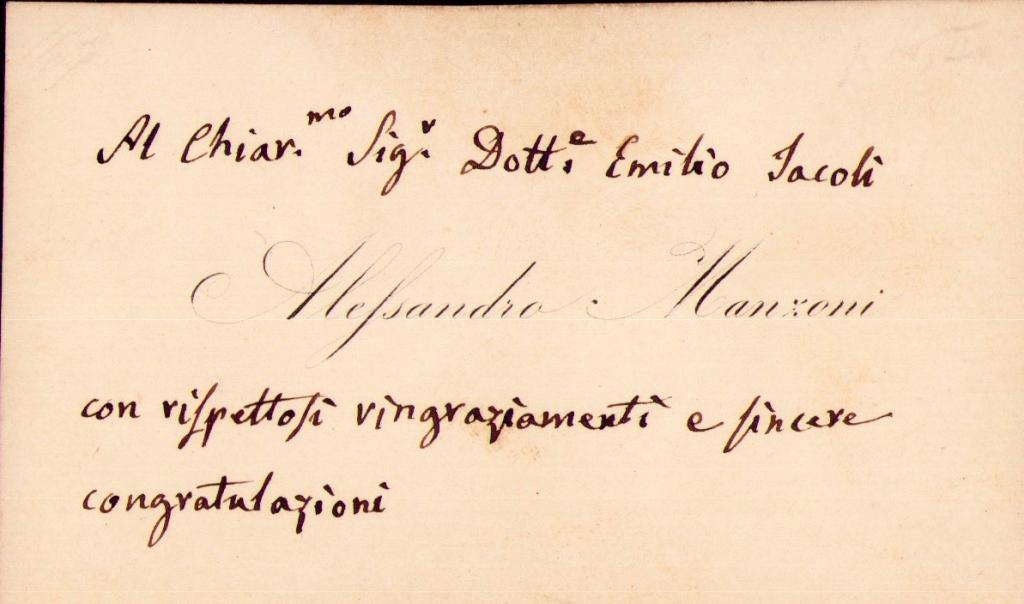 Al Chiar.mo Sigr. Dott.e Emilio Jacoli
Alessandro Manzoni
con rispettosi ringraziamenti e sincere
congratulazioni